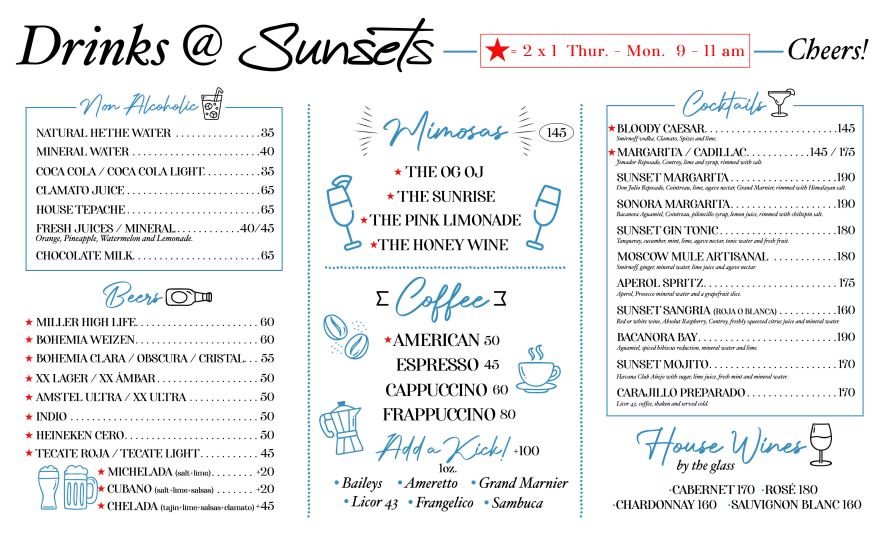 Drinks @ Sunsets
★= 2 x 1 Thur. - Mon. 9 - 11 am
Cheers!
Non Alcoholic
NATURAL HETHE WATER ....................35
MINERAL WATER ....................40
COCA COLA / COCA COLA LIGHT....................35
CLAMATO JUICE ....................65
HOUSE TEPACHE ....................65
FRESH JUICES / MINERAL....................40/45
Orange, Pineapple, Watermelon and Lemonade.
CHOCOLATE MILK....................65
Beers
★ MILLER HIGH LIFE.................... 60
★ BOHEMIA WEIZEN.................... 60
★ BOHEMIA CLARA / OBSCURA / CRISTAL... 55
★ XX LAGER / XX ÁMBAR .................... 50
★ AMSTEL ULTRA / XX ULTRA .................... 50
★ INDIO .................... 50
★ HEINEKEN CERO.................... 50
★ TECATE ROJA / TECATE LIGHT.................... 45
★ MICHELADA (salt-lime)........ +20
★ CUBANO (salt-lime-salsas) ........ +20
★ CHELADA (tajin-lime-salsas-clamato) +45
Mimosas
145
★ THE OG OJ
★ THE SUNRISE
★ THE PINK LIMONADE
★ THE HONEY WINE
Coffee
★ AMERICAN 50
ESPRESSO 45
CAPPUCCINO 60
FRAPPUCCINO 80
Add a Kick! +100
1oz.
• Baileys • Ameretto • Grand Marnier
• Licor 43 • Frangelico • Sambuca
Cocktails
★ BLOODY CAESAR....................145
Smirnoff vodka, Clamato, Spices and lime.
★ MARGARITA / CADILLAC....................145 / 175
Jimador Reposado, Controy, lime and syrup, rimmed with salt.
SUNSET MARGARITA ....................190
Don Julio Reposado, Cointreau, lime, agave nectar, Grand Marnier, rimmed with Himalayan salt.
SONORA MARGARITA....................190
Bacanora Aguamiel, Cointreau, piloncillo syrup, lemon juice, rimmed with chiltepin salt.
SUNSET GIN TONIC....................180
Tanqueray, cucumber, mint, lime, agave nectar, tonic water and fresh fruit.
MOSCOW MULE ARTISANAL ....................180
Smirnoff ginger, mineral water, lime juice and agave nectar.
APEROL SPRITZ....................175
Aperol, Prosecco mineral water and a grapefruit slice.
SUNSET SANGRIA (ROJA O BLANCA) ....................160
Red or white wine, Absolut Raspberry, Controy, freshly squeezed citrus juice and mineral water.
BACANORA BAY....................190
Aguamiel, spiced hibiscus reduction, mineral water and lime.
SUNSET MOJITO....................170
Havana Club Añejo with sugar, lime juice, fresh mint and mineral water.
CARAJILLO PREPARADO....................170
Licor 43, coffee, shaken and served cold.
House Wines
by the glass
·CABERNET 170 ·ROSÉ 180
·CHARDONNAY 160 ·SAUVIGNON BLANC 160